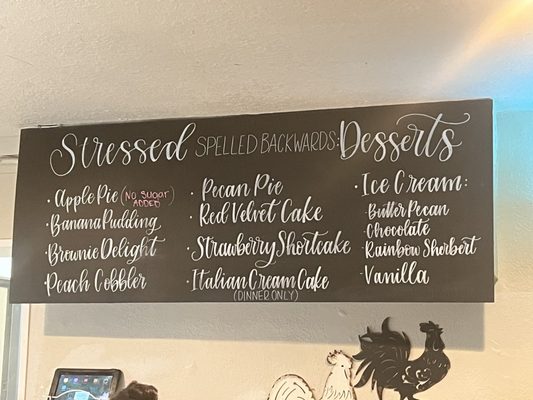 Stressed SPELLED BACKWARDS: Desserts
· Apple Pie (NO SUGAR ADDED)
· Banana Pudding
· Brownie Delight
· Peach Cobbler
· Pecan Pie
· Red Velvet Cake
· Strawberry Shortcake
· Italian Cream Cake
(DINNER ONLY)
· Ice Cream:
· Butter Pecan
· Chocolate
· Rainbow Sherbert
· Vanilla